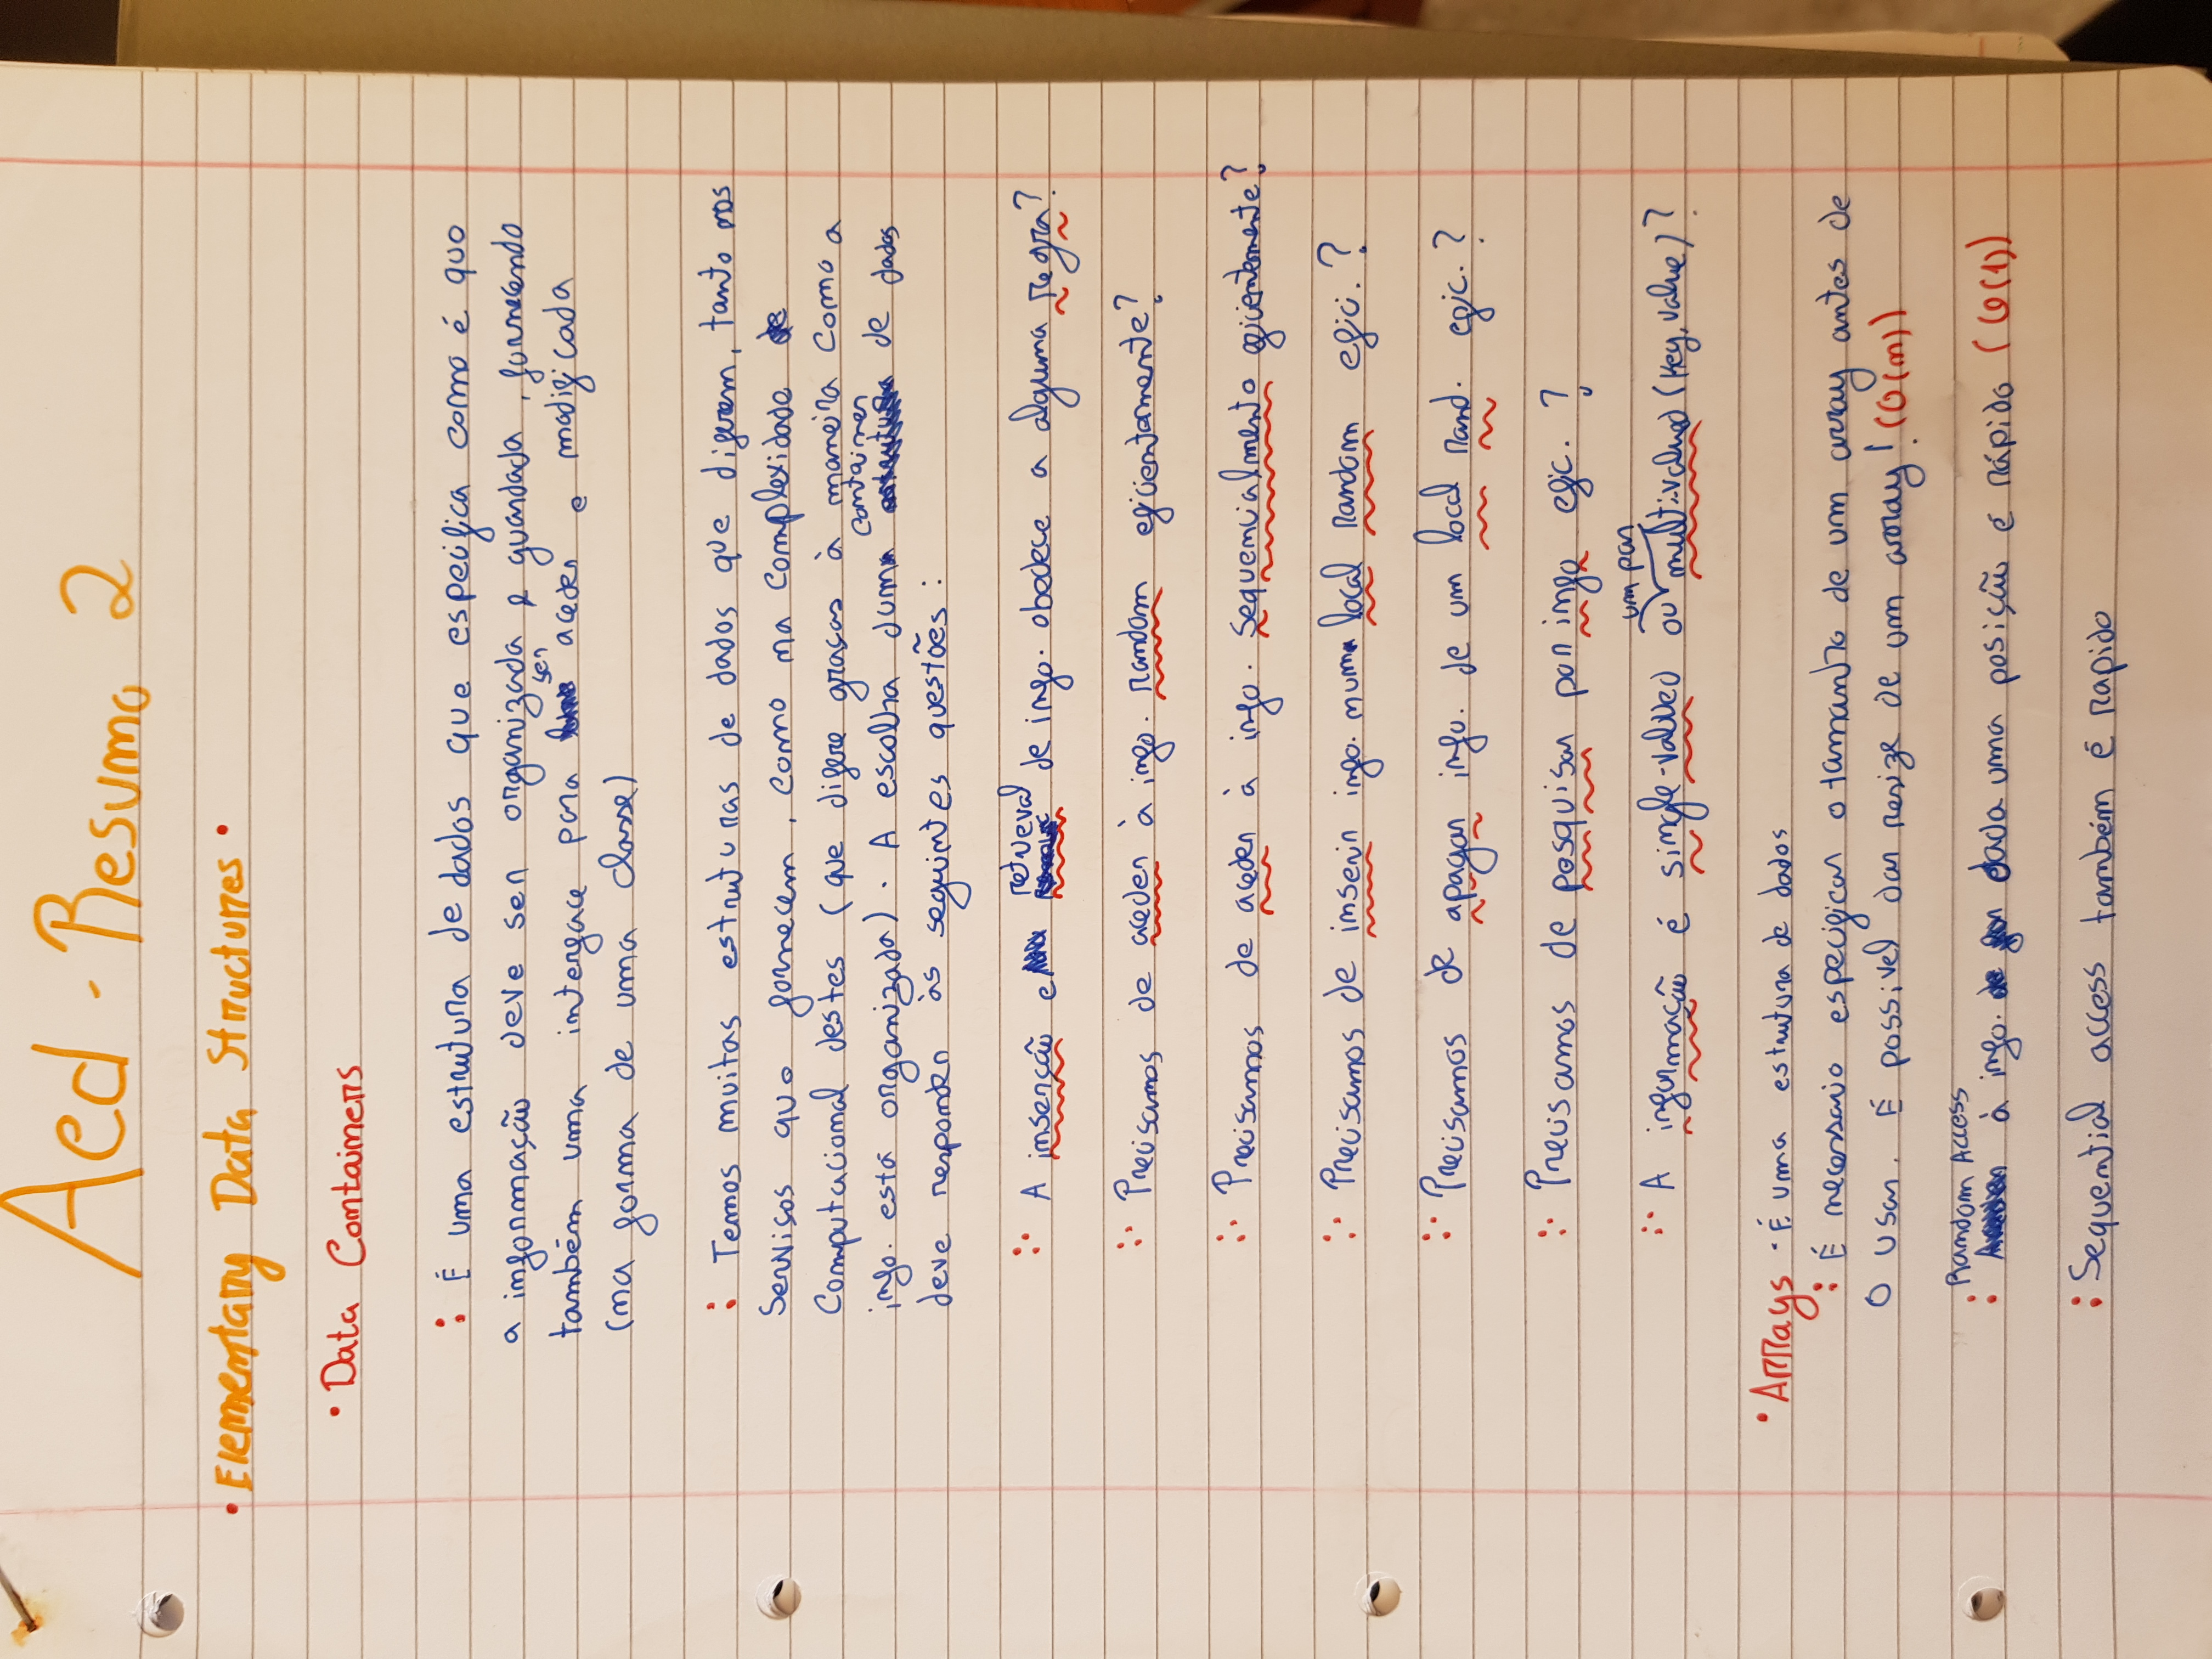 Aed - Resumo 2
• Elementary Data Structures •
• Data Containers
: É uma estrutura de dados que especifica como é que
a informação deve ser organizada e guardada, fornecendo
também uma interface para ser aceder e modificada
(na forma de uma classe)
: Temos muitas estruturas de dados que diferem, tanto nos
Serviços que fornecem, como na complexidade
Computacional destes (que difere graças à maneira como a
info. está organizada). A escolha dum container de dados
deve responder às seguintes questões:
:· A inserção e retrieval de info. obedece a alguma regra?
:· Precisamos de aceder à info. random eficientemente?
:· Precisamos de aceder à info. sequencialmente eficientemente?
:· Precisamos de inserir info. num local random efici.?
:· Precisamos de apagar info. de um local rand. efic.?
:· Precisamos de pesquisar por info efic. ?
:· A informação é single-valued ou um par multi-valued (Key, value)?
• Arrays · É uma estrutura de dados
: É necessario especificar o tamanho de um array antes de
o usar. É possivel dar resize de um array! (O(n))
: Random Access à info. dada uma posição é rápido (O(1))
: Sequential access também é rapido